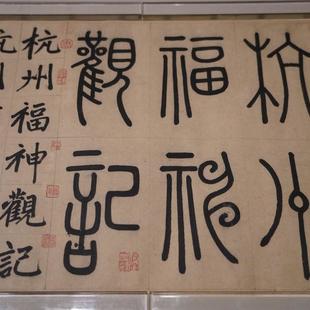 杭州
福神
觀記
杭州福神觀記
杭州